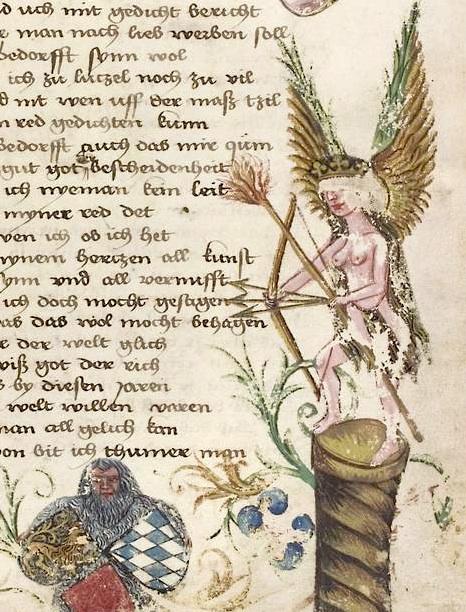 d uch mit gedicht bericht
r man nach lieb werben soll
bedorfft synn wol
ich zu lützel noch zu vil
d mit wen uff der masz tzil
n red gedichten kunn
bedorfft auch das mir gunn
gut got bescheidenheit
ich nyeman kein leit
myner red det
wen ich ob ich het
mynem hertzen all kunst
synn vnd all vernufft
ich doch mocht gesigen
das das wol mocht behagen
er der welt glich
wisz got der rich
s by diesen jaren
welt willen waren
man all gelich kan
von bit ich thumer man